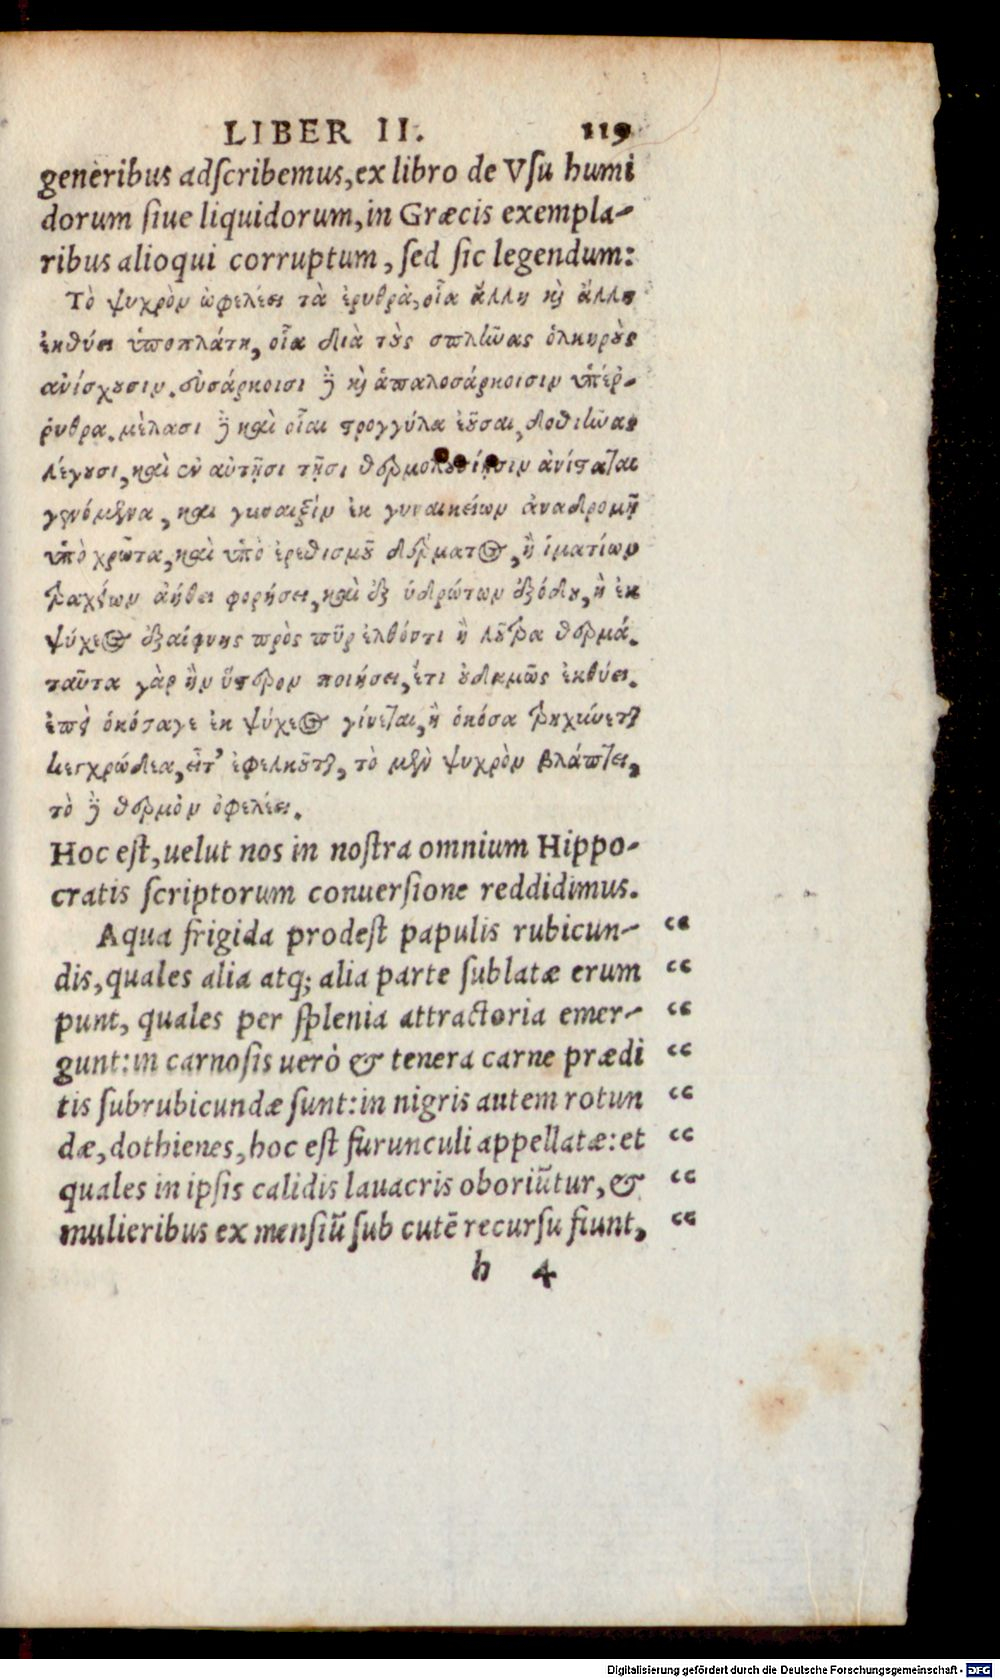 LIBER II. 119
generibus adſcribemus, ex libro de Vſu humi
dorum ſiue liquidorum, in Græcis exempla-
ribus alioqui corruptum, ſed ſic legendum:
Τὸ ψυχρὸν ὠφελέει τὰ ἐρυθρὰ, οἷα ἄλλη καὶ ἄλλη
ἐκθύει ὑποπλάτη, οἷα διὰ τοὺς σπλῶας ὁλκηροὺς
ἀνίσχουσιν. εὐσάρκοισι δὲ καὶ ἁπαλοσάρκοισιν ὑπέρ-
ρυθρα. μέλασι δὲ καὶ οἷαι στρογγύλα ἐοῦσαι, δοθιῶας
λέγουσι, καὶ ἐν αὐτῇσι τῇσι θερμολουσίῃσιν ἀνίσταται
γενόμενα, καὶ γυναιξὶν ἐκ γυναικείων ἀναδρομῇ
ὑπὸ χρῶτα, καὶ ὑπὸ ἐρεθισμοῦ δέρματος, ἢ ἱματίων
τραχέων ἀήθει φορήσει, καὶ ἐξ ὑδρώτων ἐξόδου, ἢ ἐκ
ψύχεος ἐξαίφνης πρὸς πῦρ ἐλθόντι ἢ λοῦτρα θερμά.
ταῦτα γὰρ ἢν ὕστερον ποιήσει, ἔτι οὐδαμῶς ἐκθύει.
ἐπεὶ ὁκόσαγε ἐκ ψύχεος γίνεται, ἢ ὁκόσα τρηχύνεται
κεγχρώδεα, εἶτ' ἐφελκοῦται, τὸ μὲν ψυχρὸν βλάπτει,
τὸ δὲ θερμὸν ὀφελέει.
Hoc eſt, uelut nos in noſtra omnium Hippo-
cratis ſcriptorum conuerſione reddidimus.
Aqua frigida prodeſt papulis rubicun- “
dis, quales alia atq; alia parte ſublatæ erum “
punt, quales per ſplenia attractoria emer- “
gunt: in carnoſis uerò & tenera carne prædi “
tis ſubrubicundæ ſunt: in nigris autem rotun “
dæ, dothienes, hoc eſt furunculi appellatæ: et “
quales in ipſis calidis lauacris oboriūtur, & “
mulieribus ex menſiū ſub cutē recurſu fiunt, “
h 4
Digitalisierung gefördert durch die Deutsche Forschungsgemeinschaft - DFG